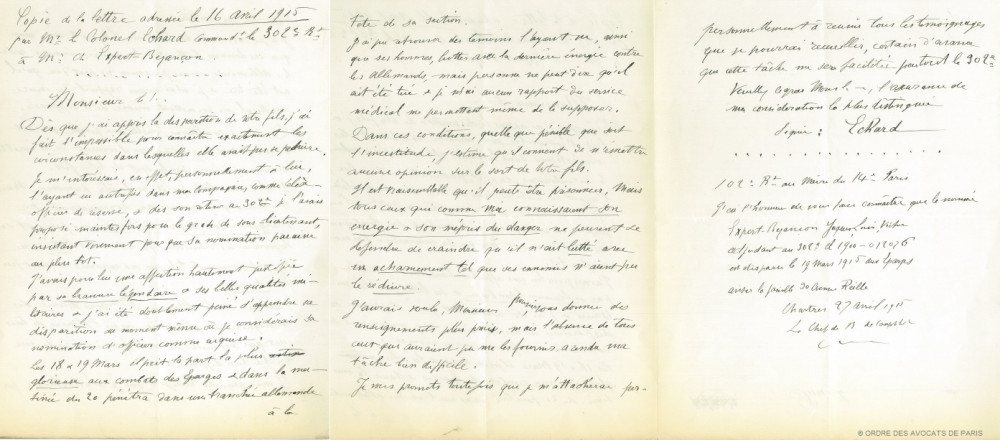 Copie de la lettre adressée le 16 avril 1915
par Mr le Colonel Echard commandt le 302e Rt
à Mr de Expert Bezançon
Monsieur
Dès que j'ai appris la disparition de votre fils, j'ai
fait l'impossible pour connaître exactement les
circonstances dans lesquelles elle avait pu se produire.
Je m'intéressais, en effet, personnellement à lui,
l'ayant eu autrefois dans ma compagnie, comme
officier de réserve, & dès son retour au 302e je l'avais
proposé maintes fois pour le grade de sous lieutenant,
insistant vivement pour que sa nomination parvienne
au plus tôt.
J'avais pour lui une affection hautement justifiée
par sa bravoure légendaire & ses belles qualités mi-
litaires & j'ai été doublement peiné d'apprendre sa
disparition au moment même où je considérais sa
nomination d'officier comme acquise.
Les 18 & 19 Mars il prit la part la plus
glorieuse aux combats des Eparges & dans la ma-
tinée du 20 pénétra dans une tranchée allemande
à la
tête de sa section.
J'ai pu retrouver des témoins l'ayant vu, ainsi
que ses hommes, lutter avec la dernière énergie contre
les Allemands, mais personne ne peut dire qu'il
ait été tué & je n'ai aucun rapport du service
médical me permettant même de le supposer.
Dans ces conditions, quelque pénible que soit
l'incertitude, j'estime qu'il convient de n'émettre
aucune opinion sur le sort de votre fils.
Il est vraisemblable qu'il peut être prisonnier, Mais
tous ceux qui comme moi connaissaient son
énergie & son mépris du danger ne peuvent se
défendre de craindre qu'il n'ait lutté avec
un acharnement tel que ses ennemis n'aient pu
le réduire.
J'aurais voulu, Monsieur, pouvoir vous donner des
renseignements plus précis, mais l'absence de tous
ceux qui auraient pu me les fournir, a rendu ma
tâche bien difficile.
Je me promets toutefois que je m'attacherai per-
personnellement à réunir tous les témoignages
que je pourrai recueillir, certain d'avance
que cette tâche me sera facilitée par tout le 302e
Veuillez agréer Monsieur, l'assurance de
ma considération la plus distinguée
Signé : Echard
102e Rt au Maire du 14e Paris
J'ai l'honneur de vous faire connaître que le nommé
Expert Bezançon Joseph Louis,
adjudant au 302e Cl 1900 - 012076
est disparu le 19 Mars 1915 aux Eparges
aviser la famille 30 avenue Reille
Chartres 27 avril 1915
Le Chef de B
© ORDRE DES AVOCATS DE PARIS